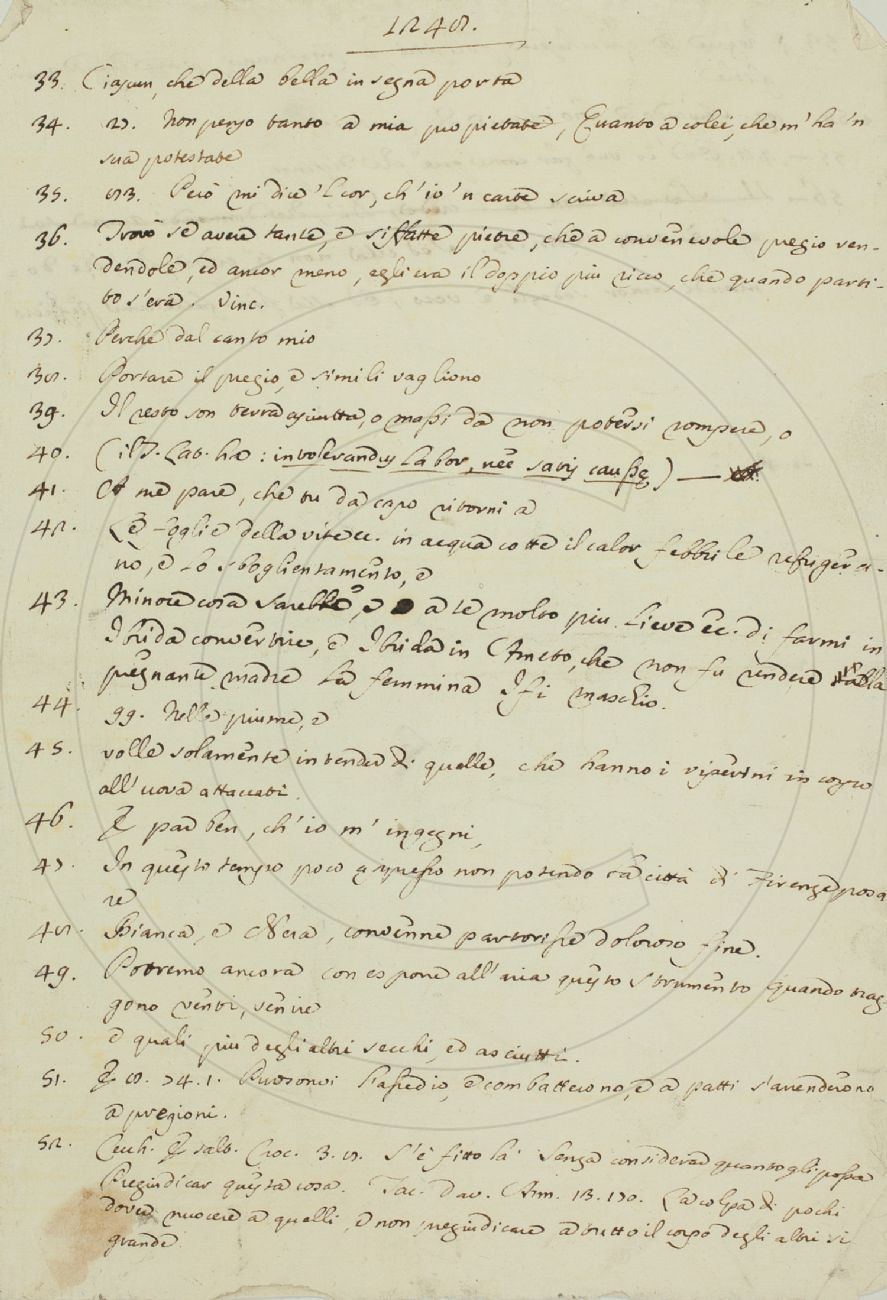 1248.
33. Ciascun, che della bella insegna porta
34. 27. Non penso tanto a mia propietate, Quanto a colei, che m'ha 'n
sua potestate
35. 83. Però mi dice 'l cor, ch'io 'n carte scriva
36. Trovò se avere tante, e siffatte pietre, che a convenevole pregio ven-
dendole, ed ancor meno, egli era il doppio più ricco, che quando parti-
to s'era. Vinc.
37. Perchè dal canto mio
38. Portare il pregio, e simili vagliono
39. Il resto son terra asciutta, o massi da non potersi rompere, o
40. (il T. Lat. ha: intolerandus labor, nec satis causse) —
41. A me pare, che tu da capo ritorni a
42. Le foglie della vite ec. in acqua cotte il calor febbrile refugera-
no, e lo sboglientamento, e
43. Minore cosa sarebbe, e a te molto più lieve ec. di farmi in
Ibrida convertire, e Ibrida in Ameto, che non fu rendere alla
pregnante madre la femmina Ifi maschio.
44. 99. Nelle piume, e
45. volle solamente intender di quelle, che hanno i viperini in corpo
all'uova attaccati.
46. E par ben, ch'io m'ingegni,
47. In questo tempo poco appresso non potendo la città di Firenze posa
re
48. Bianca, e Nera, convenne partorisse doloroso fine.
49. Potremo ancora con esporre all'aria questo strumento quando trag-
gono venti, venire
50. e quali più degli altri secchi, ed asciutti.
51. E 8. 74. 1. Puosonvi l'assedio, e combatterono, e a patti s'arrenderono
a pregioni.
52. Cecch. E Salv. Croc. 3. 8. S'è fitto là Senza considerar quanto gli possa
Pregiudicar questa cosa. Tac. Dav. Ann. 13. 170. La colpa di pochi
dover nuocere a quelli, e non pregiudicare a tutto il corpo degli altri sì
grande